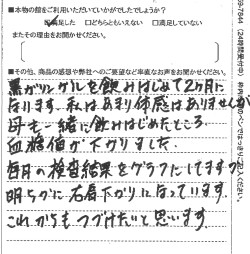 ■本物の館をご利用いただいていかがでしたでしょうか？
☑満足した □どちらともいえない □満足していない
またその理由をお聞かせください。
■その他、商品の感想や弊社へのご要望など率直なお声をお聞かせください。
黒がリンガルを飲みはじめて2ヶ月に
なります。私はあまり体感はありませんが
母も一緒に飲みはじめたところ
血糖値が下がりました。
毎月の検査結果をグラフにしてますが
明らかに右肩下がりになっています。
これからもつづけたいと思います。
(24時間受付中)